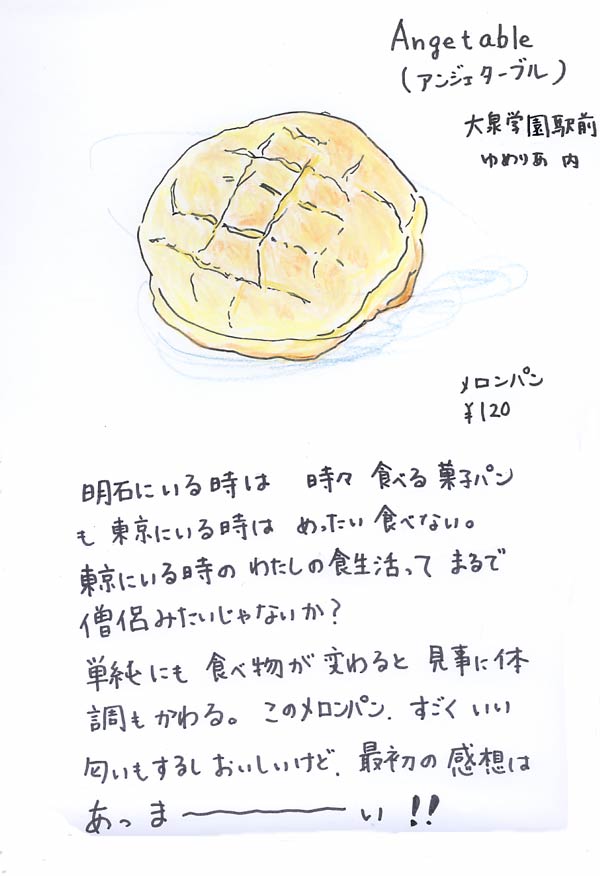 Angetable
(アンジェターブル)
大泉学園駅前
ゆめりあ 内
メロンパン
¥120
明石にいる時は 時々 食べる 菓子パン
も 東京にいる時は めったい 食べない。
東京にいる時の わたしの食生活って まるで
僧侶みたいじゃないか?
単純にも 食べ物が 変わると 見事に体
調もかわる。 このメロンパン. すごく いい
匂いもするし おいしいけど. 最初の 感想は
あっ ま———い !!